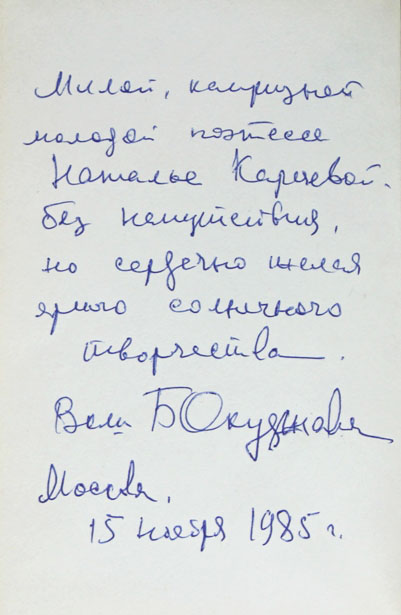 Милой, капризной
молодой поэтессе
Наталье Карпевой.
без напутствия,
но сердечно желая
яркого солнечного
творчества.
Ваш Б Окуджава
Москва.
15 ноября 1985 г.